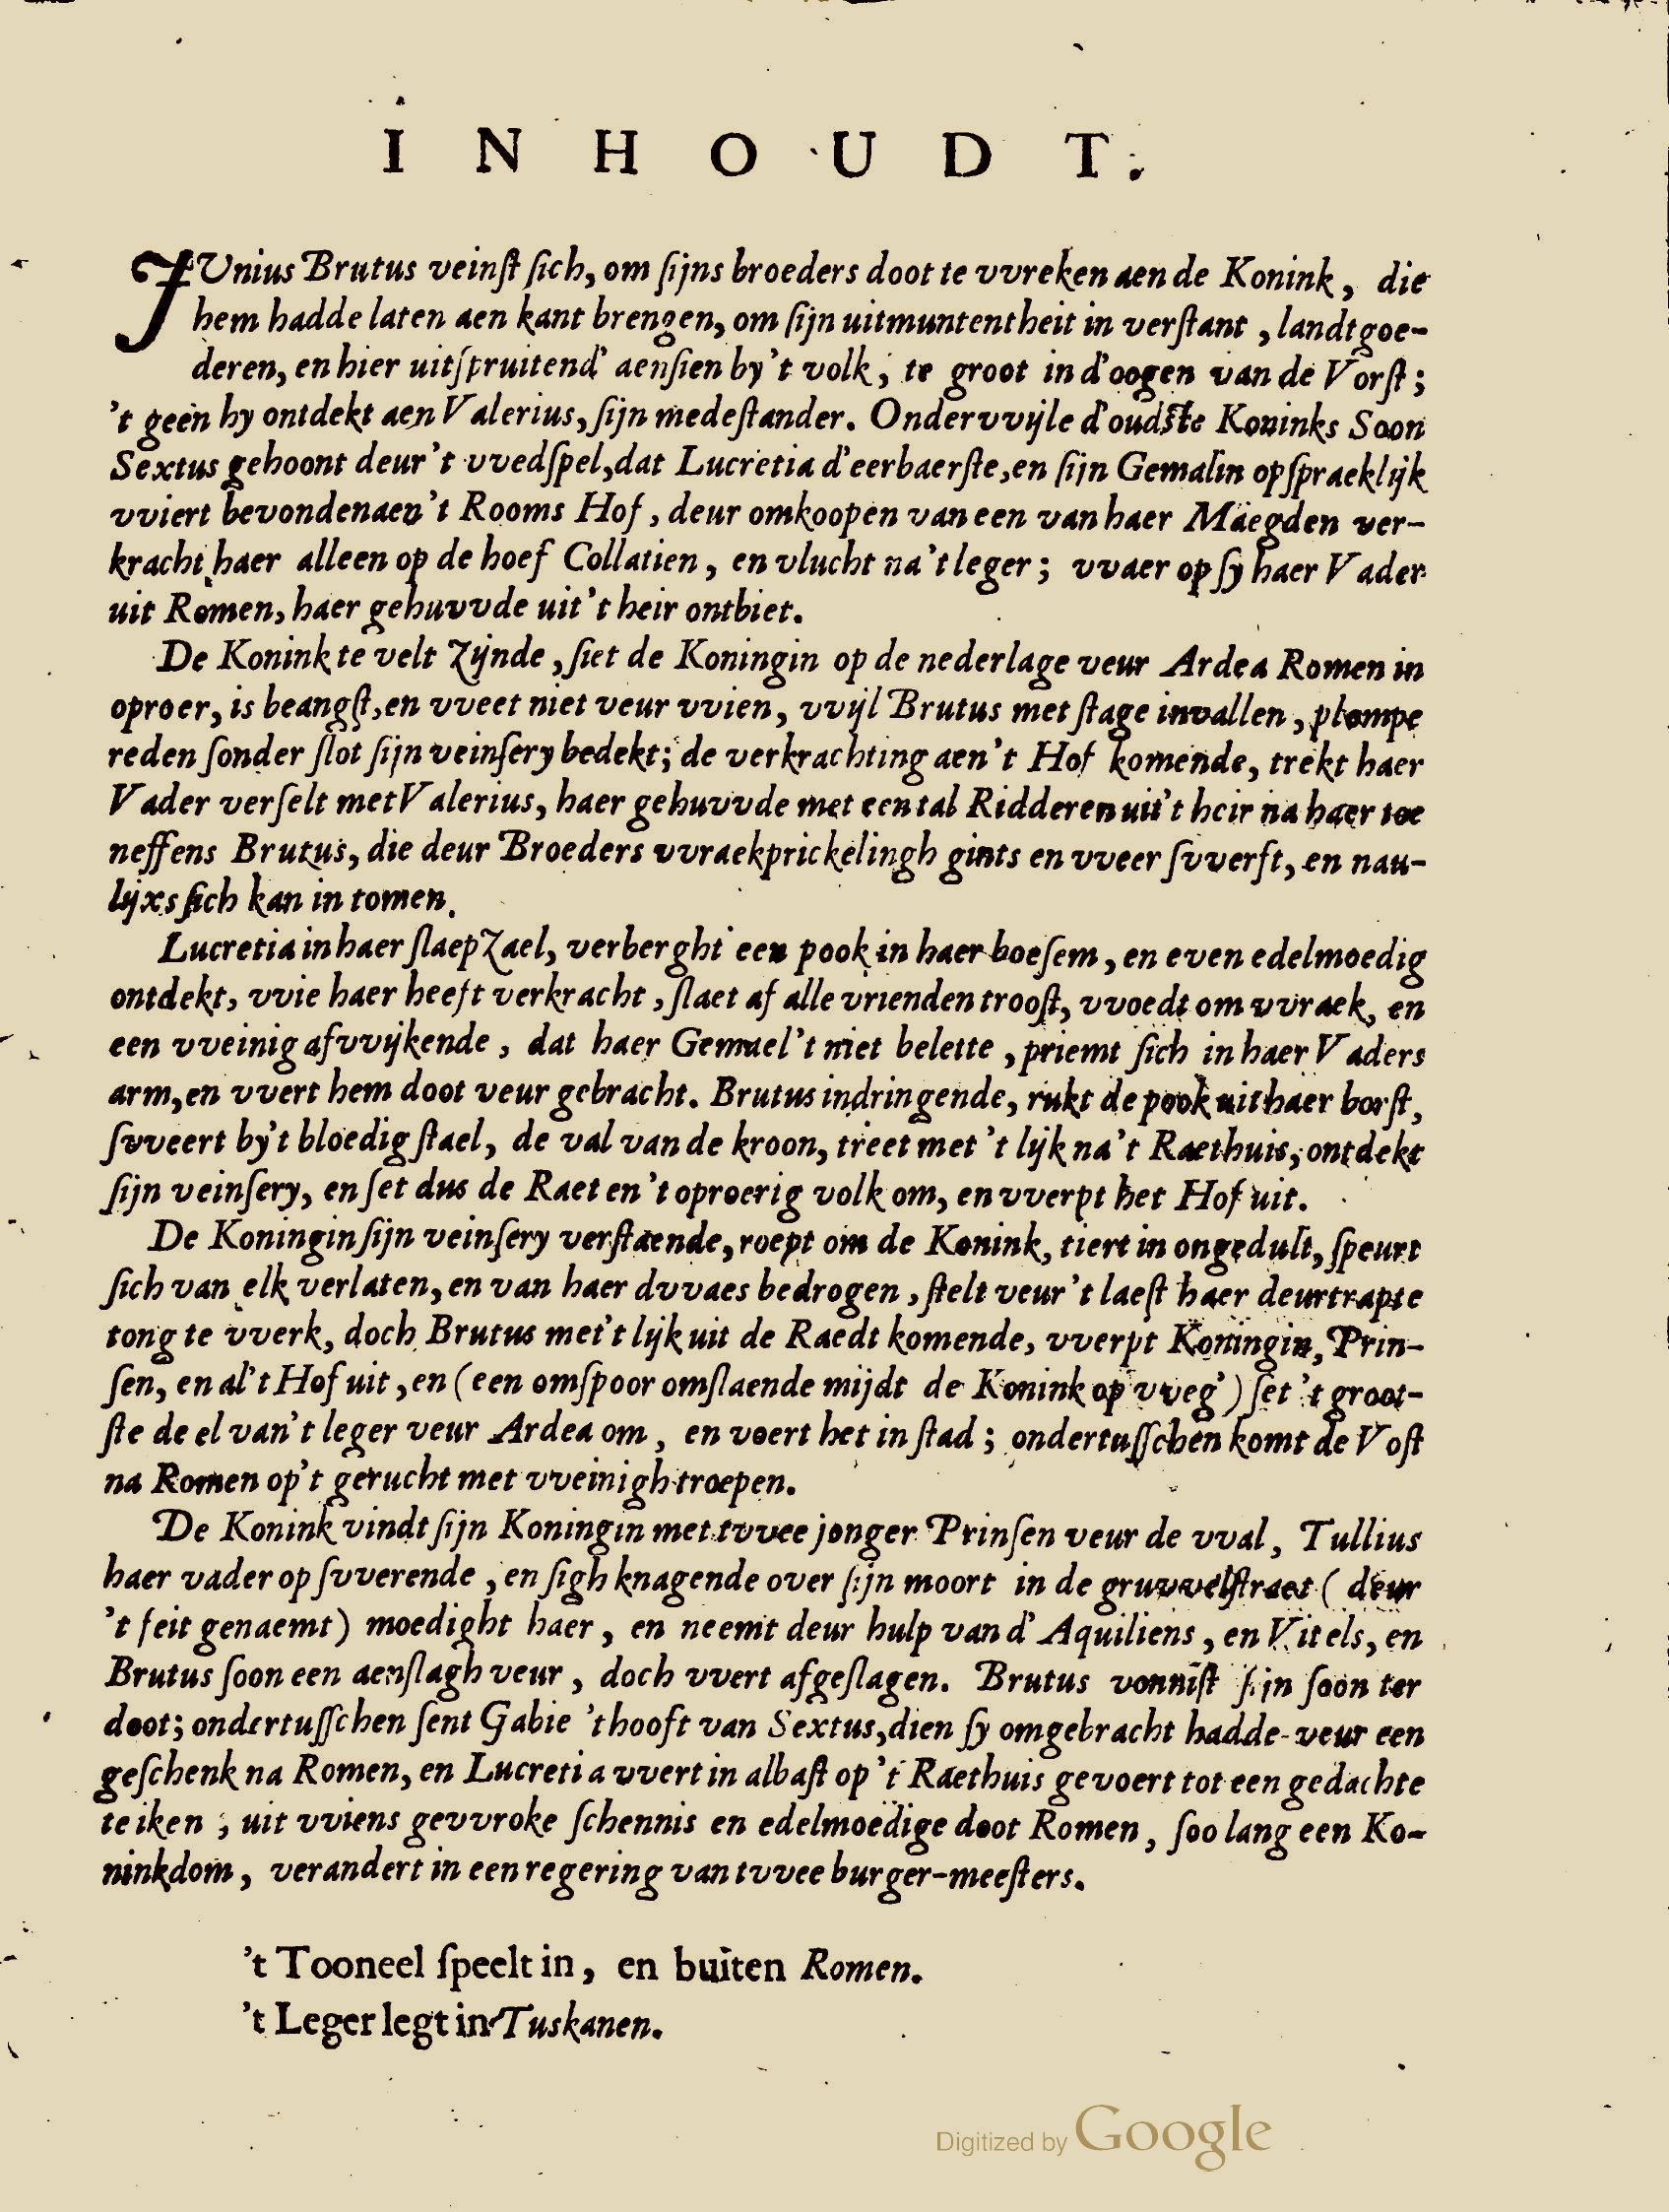 INHOUDT.
JUnius Brutus veinſt ſich, om ſijns broeders doot te vvreken aen de Konink, die
hem hadde laten aen kant brengen, om ſijn uitmuntentheit in verſtant, landtgoe-
deren, en hier uitſpruitend' aenſien by 't volk, te groot in d'oogen van de Vorſt;
't geen hy ontdekt aen Valerius, ſijn medeſtander. Ondervvijle d'oudſte Koninks Soon
Sextus gehoont deur 't vvedſpel, dat Lucretia d'eerbaerſte, en ſijn Gemalin opſpraeklijk
vviert bevonden aen 't Rooms Hof, deur omkoopen van een van haer Maegden ver-
kracht haer alleen op de hoef Collatien, en vlucht na 't leger; vvaer op ſy haer Vader
uit Romen, haer gehuvvde uit 't heir ontbiet.
De Konink te velt zijnde, ſiet de Koningin op de nederlage veur Ardea Romen in
oproer, is beangſt, en vveet niet veur vvien, vvijl Brutus met ſtage invallen, plompe
reden ſonder ſlot ſijn veinſery bedekt; de verkrachting aen 't Hof komende, trekt haer
Vader verſelt met Valerius, haer gehuvvde met een tal Ridderen uit 't heir na haer toe
neffens Brutus, die deur Broeders vvraekprickelingh gints en vveer ſvverft, en nau-
lijxs ſich kan in tomen.
Lucretia in haer ſlaepzael, verberght een pook in haer boeſem, en even edelmoedig
ontdekt, vvie haer heeft verkracht, ſlaet af alle vrienden trooſt, vvoedt om vvraek, en
een vveinig afvvijkende, dat haer Gemael 't niet belette, priemt ſich in haer Vaders
arm, en vvert hem doot veur gebracht. Brutus indringende, rukt de pook uit haer borſt,
ſvveert by 't bloedig ſtael, de val van de kroon, treet met 't lijk na 't Raethuis, ontdekt
ſijn veinſery, en ſet dus de Raet en 't oproerig volk om, en vverpt het Hof uit.
De Koningin ſijn veinſery verſtaende, roept om de Konink, tiert in ongedult, ſpeurt
ſich van elk verlaten, en van haer dvvaes bedrogen, ſtelt veur 't laeſt haer deurtrapte
tong te vverk, doch Brutus met 't lijk uit de Raedt komende, vverpt Koningin, Prin-
ſen, en al 't Hof uit, en (een omſpoor omſlaende mijdt de Konink op vveg') ſet 't groot-
ſte deel van 't leger veur Ardea om, en voert het in ſtad; ondertuſſchen komt de Voſt
na Romen op 't gerucht met vveinigh troepen.
De Konink vindt ſijn Koningin met tvvee jonger Prinſen veur de vval, Tullius
haer vader op ſvverende, en ſigh knagende over ſijn moort in de gruvvelſtraet (deur
't feit genaemt) moedight haer, en neemt deur hulp van d' Aquiliens, en Vitels, en
Brutus ſoon een aenſlagh veur, doch vvert afgeſlagen. Brutus vonniſt ſijn ſoon ter
doot; ondertuſſchen ſent Gabie 't hooft van Sextus, dien ſy omgebracht hadde veur een
geſchenk na Romen, en Lucretia vvert in albaſt op 't Raethuis gevoert tot een gedachte
teiken; uit vviens gevvroke ſchennis en edelmoedige doot Romen, ſoo lang een Ko-
ninkdom, verandert in een regering van tvvee burger-meeſters.
't Tooneel ſpeelt in, en buiten Romen.
't Leger legt in Tuskanen.
Digitized by Google